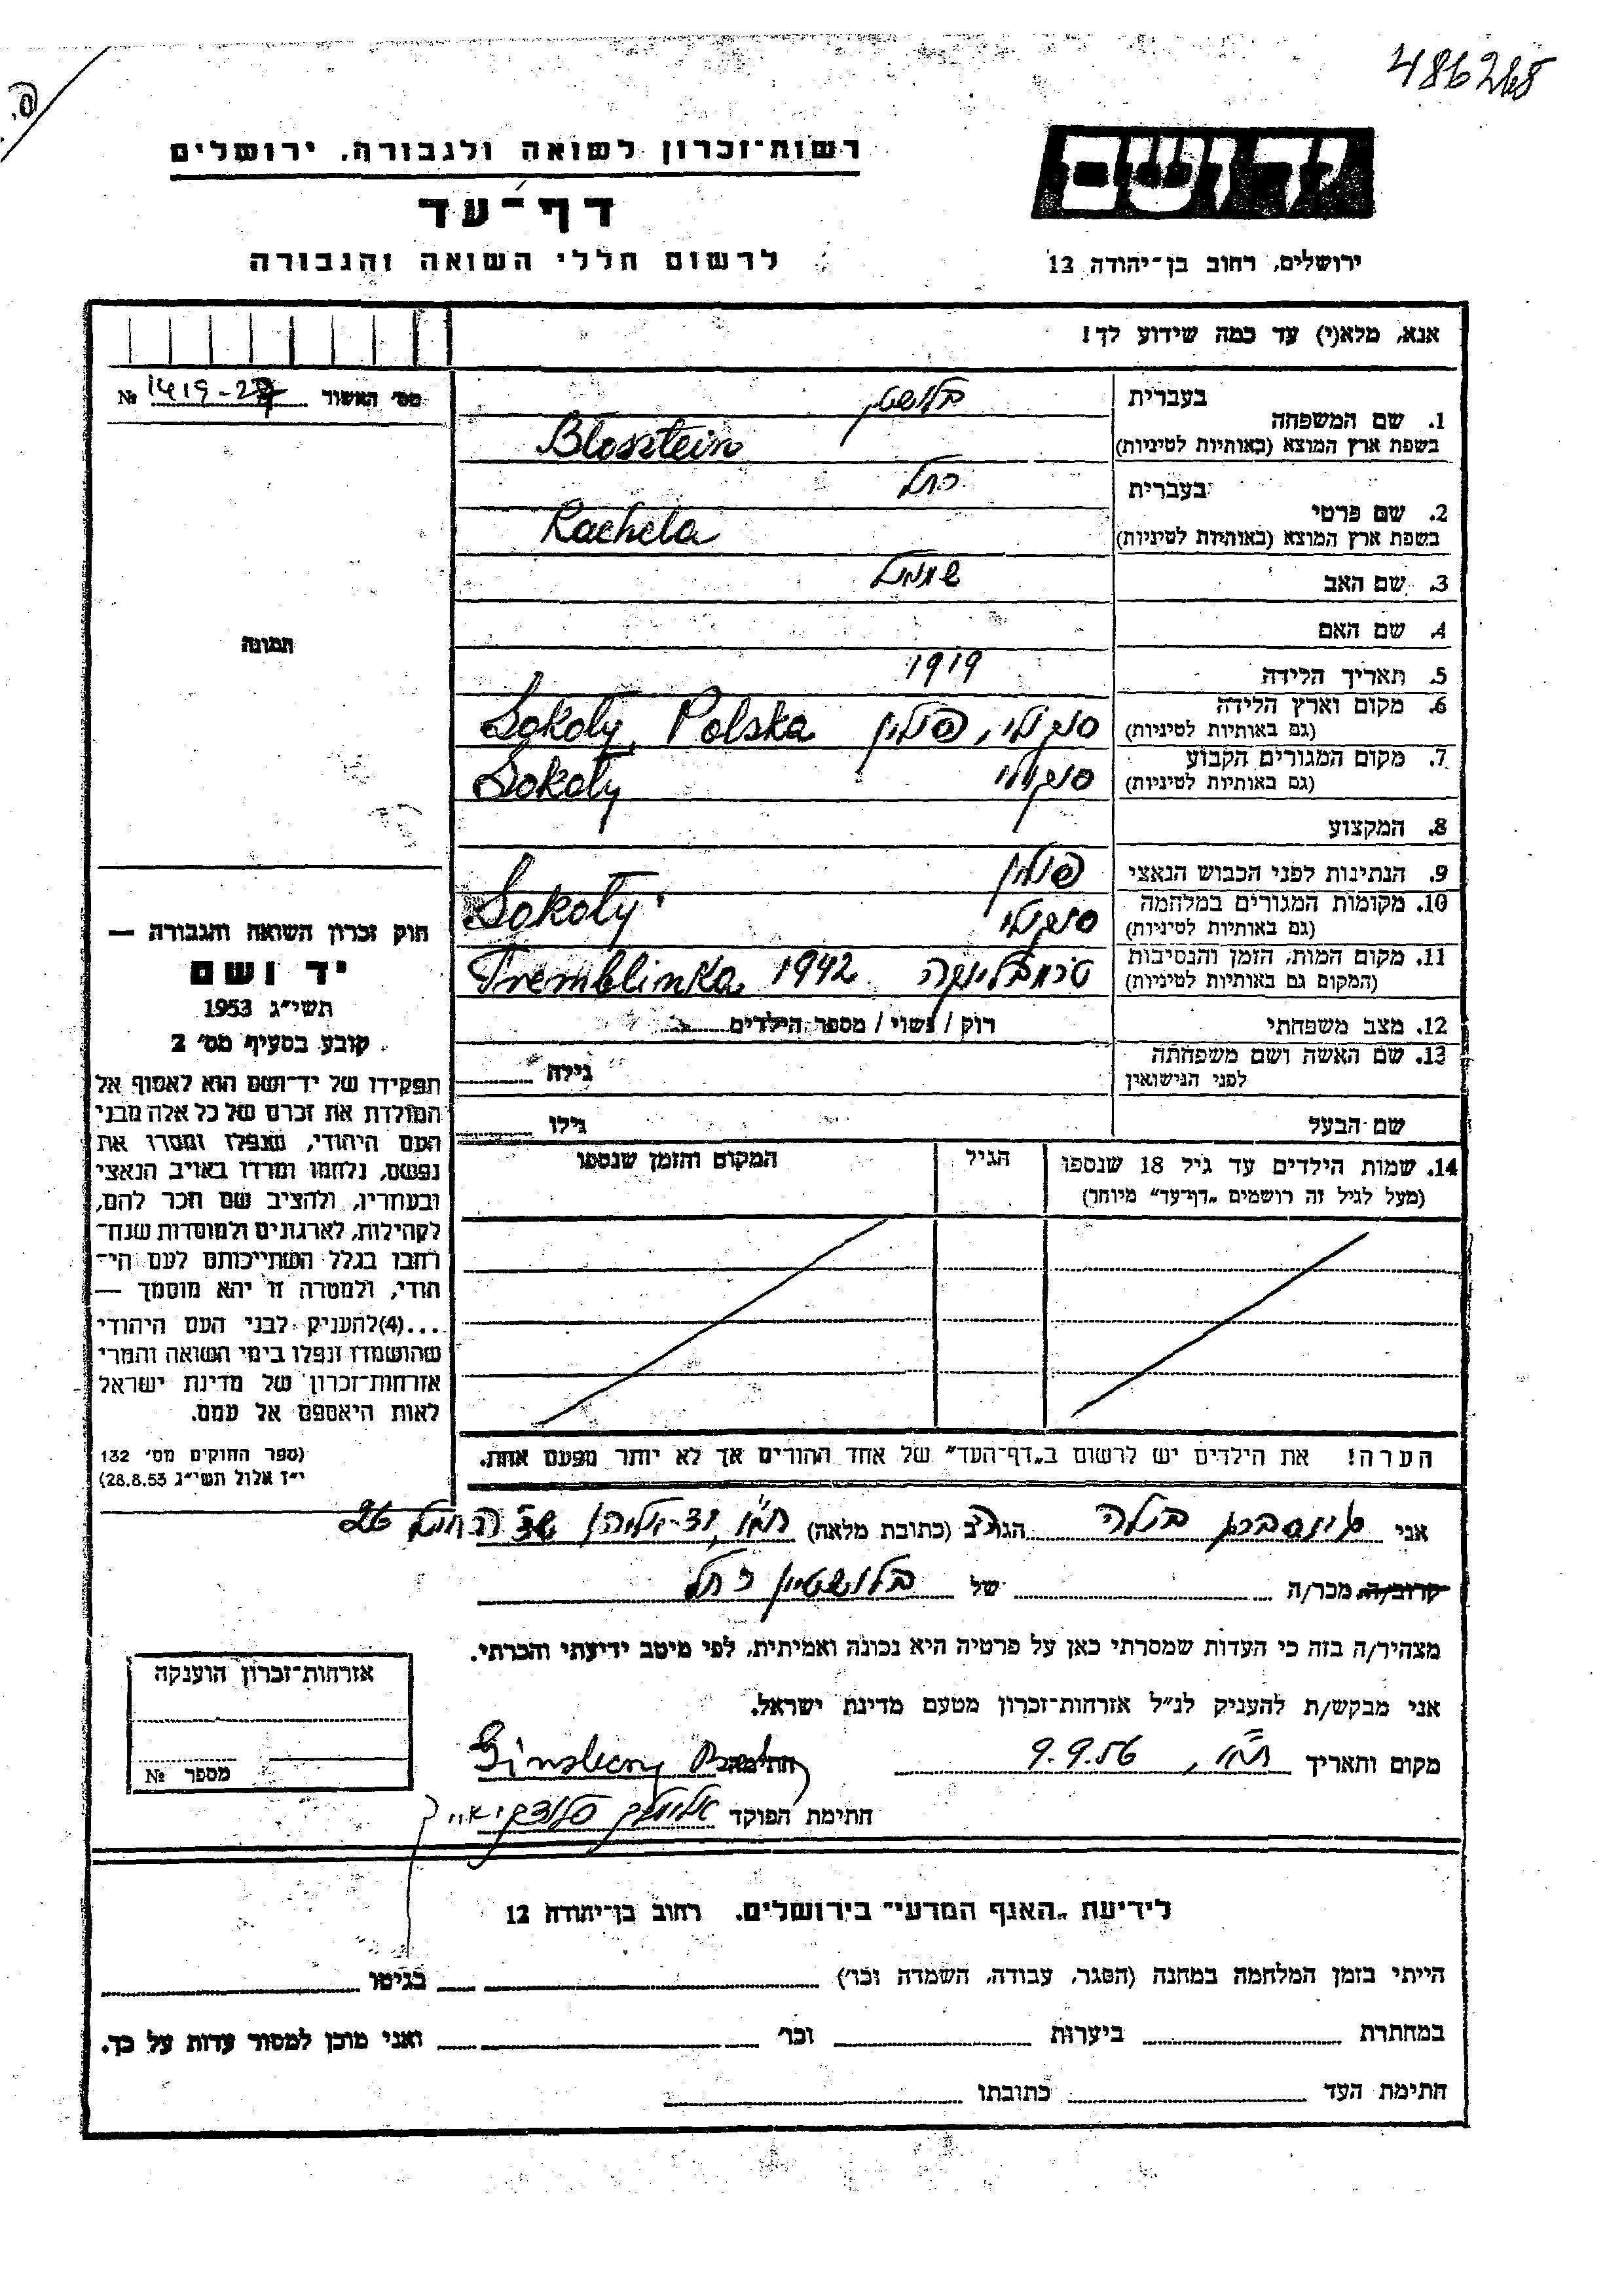 486265
רשות־זכרון לשואה ולגבורה, ירושלים
דף־עד
לרשום חללי השואה והגבורה
יד ושם
ירושלים, רחוב בן־יהודה 12
אנא, מלא(י) עד כמה שידוע לך!
מס׳ האשור № 1419-27
תמונה
1. שם המשפחה בעברית בלושטין
בשפת ארץ המוצא (באותיות לטיניות) Blosztein
2. שם פרטי בעברית רחל
בשפת ארץ המוצא (באותיות לטיניות) Rachela
3. שם האב שמואל
4. שם האם
5. תאריך הלידה 1919
6. מקום וארץ הלידה סוקולי, פולין Sokoly, Polska
(גם באותיות לטיניות)
7. מקום המגורים הקבוע סוקולי Sokoly
(גם באותיות לטיניות)
8. המקצוע
9. הנתינות לפני הכבוש הנאצי פולין
10. מקומות המגורים במלחמה סוקולי Sokoly
(גם באותיות לטיניות)
11. מקום המות, הזמן והנסיבות טרמבלינקה 1942 Tremblinka
(המקום גם באותיות לטיניות)
12. מצב משפחתי רוק / נשוי / מספר הילדים
13. שם האשה ושם משפחתה
לפני הנישואין גילה
שם הבעל גילו
14. שמות הילדים עד גיל 18 שנספו הגיל המקום והזמן שנספו
(מעל לגיל זה רושמים „דף־עד״ מיוחד)
הערה! את הילדים יש לרשום ב„דף־העד״ של אחד ההורים אך לא יותר מפעם אחת.
חוק זכרון השואה והגבורה —
יד ושם
תשי״ג 1953
קובע בסעיף מס׳ 2
תפקידו של יד־ושם הוא לאסוף אל
המולדת את זכרם של כל אלה מבני
העם היהודי, שנפלו ומסרו את
נפשם, נלחמו ומרדו באויב הנאצי
ובעוזריו, ולהציב שם וזכר להם,
לקהילות, לארגונים ולמוסדות שנח־
רבו בגלל השתייכותם לעם הי־
הודי, ולמטרה זו יהא מוסמך —
...(4) להעניק לבני העם היהודי
שהושמדו ונפלו בימי השואה והמרי
אזרחות־זכרון של מדינת ישראל
לאות היאספם אל עמם.
(ספר החוקים מס׳ 132
י״ז אלול תשי״ג 28.8.53)
אני גינסברג בילה הגר/ה ב (כתובת מלאה) 26
קרוב/ה, מכר/ה של בלושטיין רחל
מצהיר/ה בזה כי העדות שמסרתי כאן על פרטיה היא נכונה ואמיתית, לפי מיטב ידיעתי והכרתי.
אני מבקש/ת להעניק לנ״ל אזרחות־זכרון מטעם מדינת ישראל.
מקום ותאריך 9.9.56 חתימה Ginsberg
חתימת הפוקד
אזרחות־זכרון הוענקה
מספר №
לידיעת „האגף המדעי״ בירושלים. רחוב בן־יהודה 12
הייתי בזמן המלחמה במחנה (הסגר, עבודה, השמדה וכו׳) בגיטו
במחתרת ביערות וכו׳ ואני מוכן למסור עדות על כך.
חתימת העד כתובתו